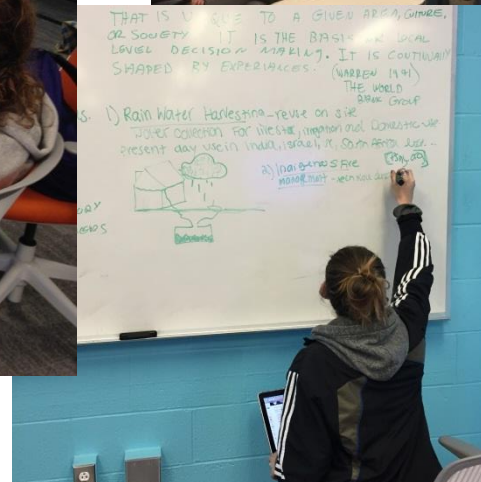 THAT IS UNIQUE TO A GIVEN AREA, CULTURE,
OR SOCIETY IT IS THE BASIS FOR LOCAL
LEVEL DECISION MAKING. IT IS CONTINUALLY
SHAPED BY EXPERIANCES. (WARREN 1991)
THE WORLD
BANK GROUP
1) Rain Water Harvesting - reuse on site
Water collection For livestock, irrigation and Domestic use
present day use in India, Israel, South Africa
2) Indigenous Fire
management